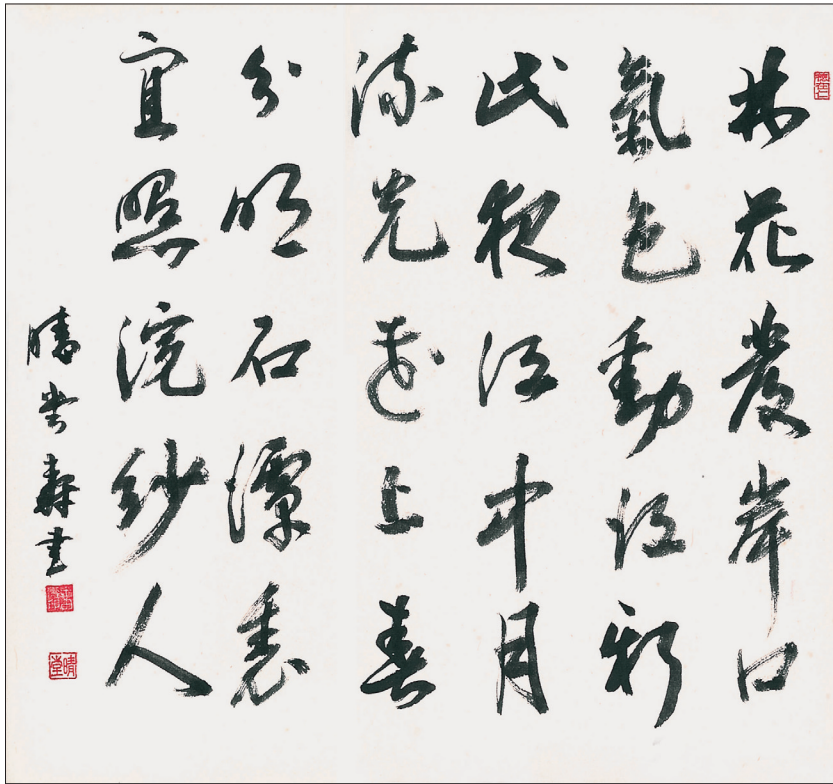 林花發岸口
氣色動江新
此夜江中月
流光花上春
分明石潭裏
宜照浣紗人
晴堂壽書
晴堂